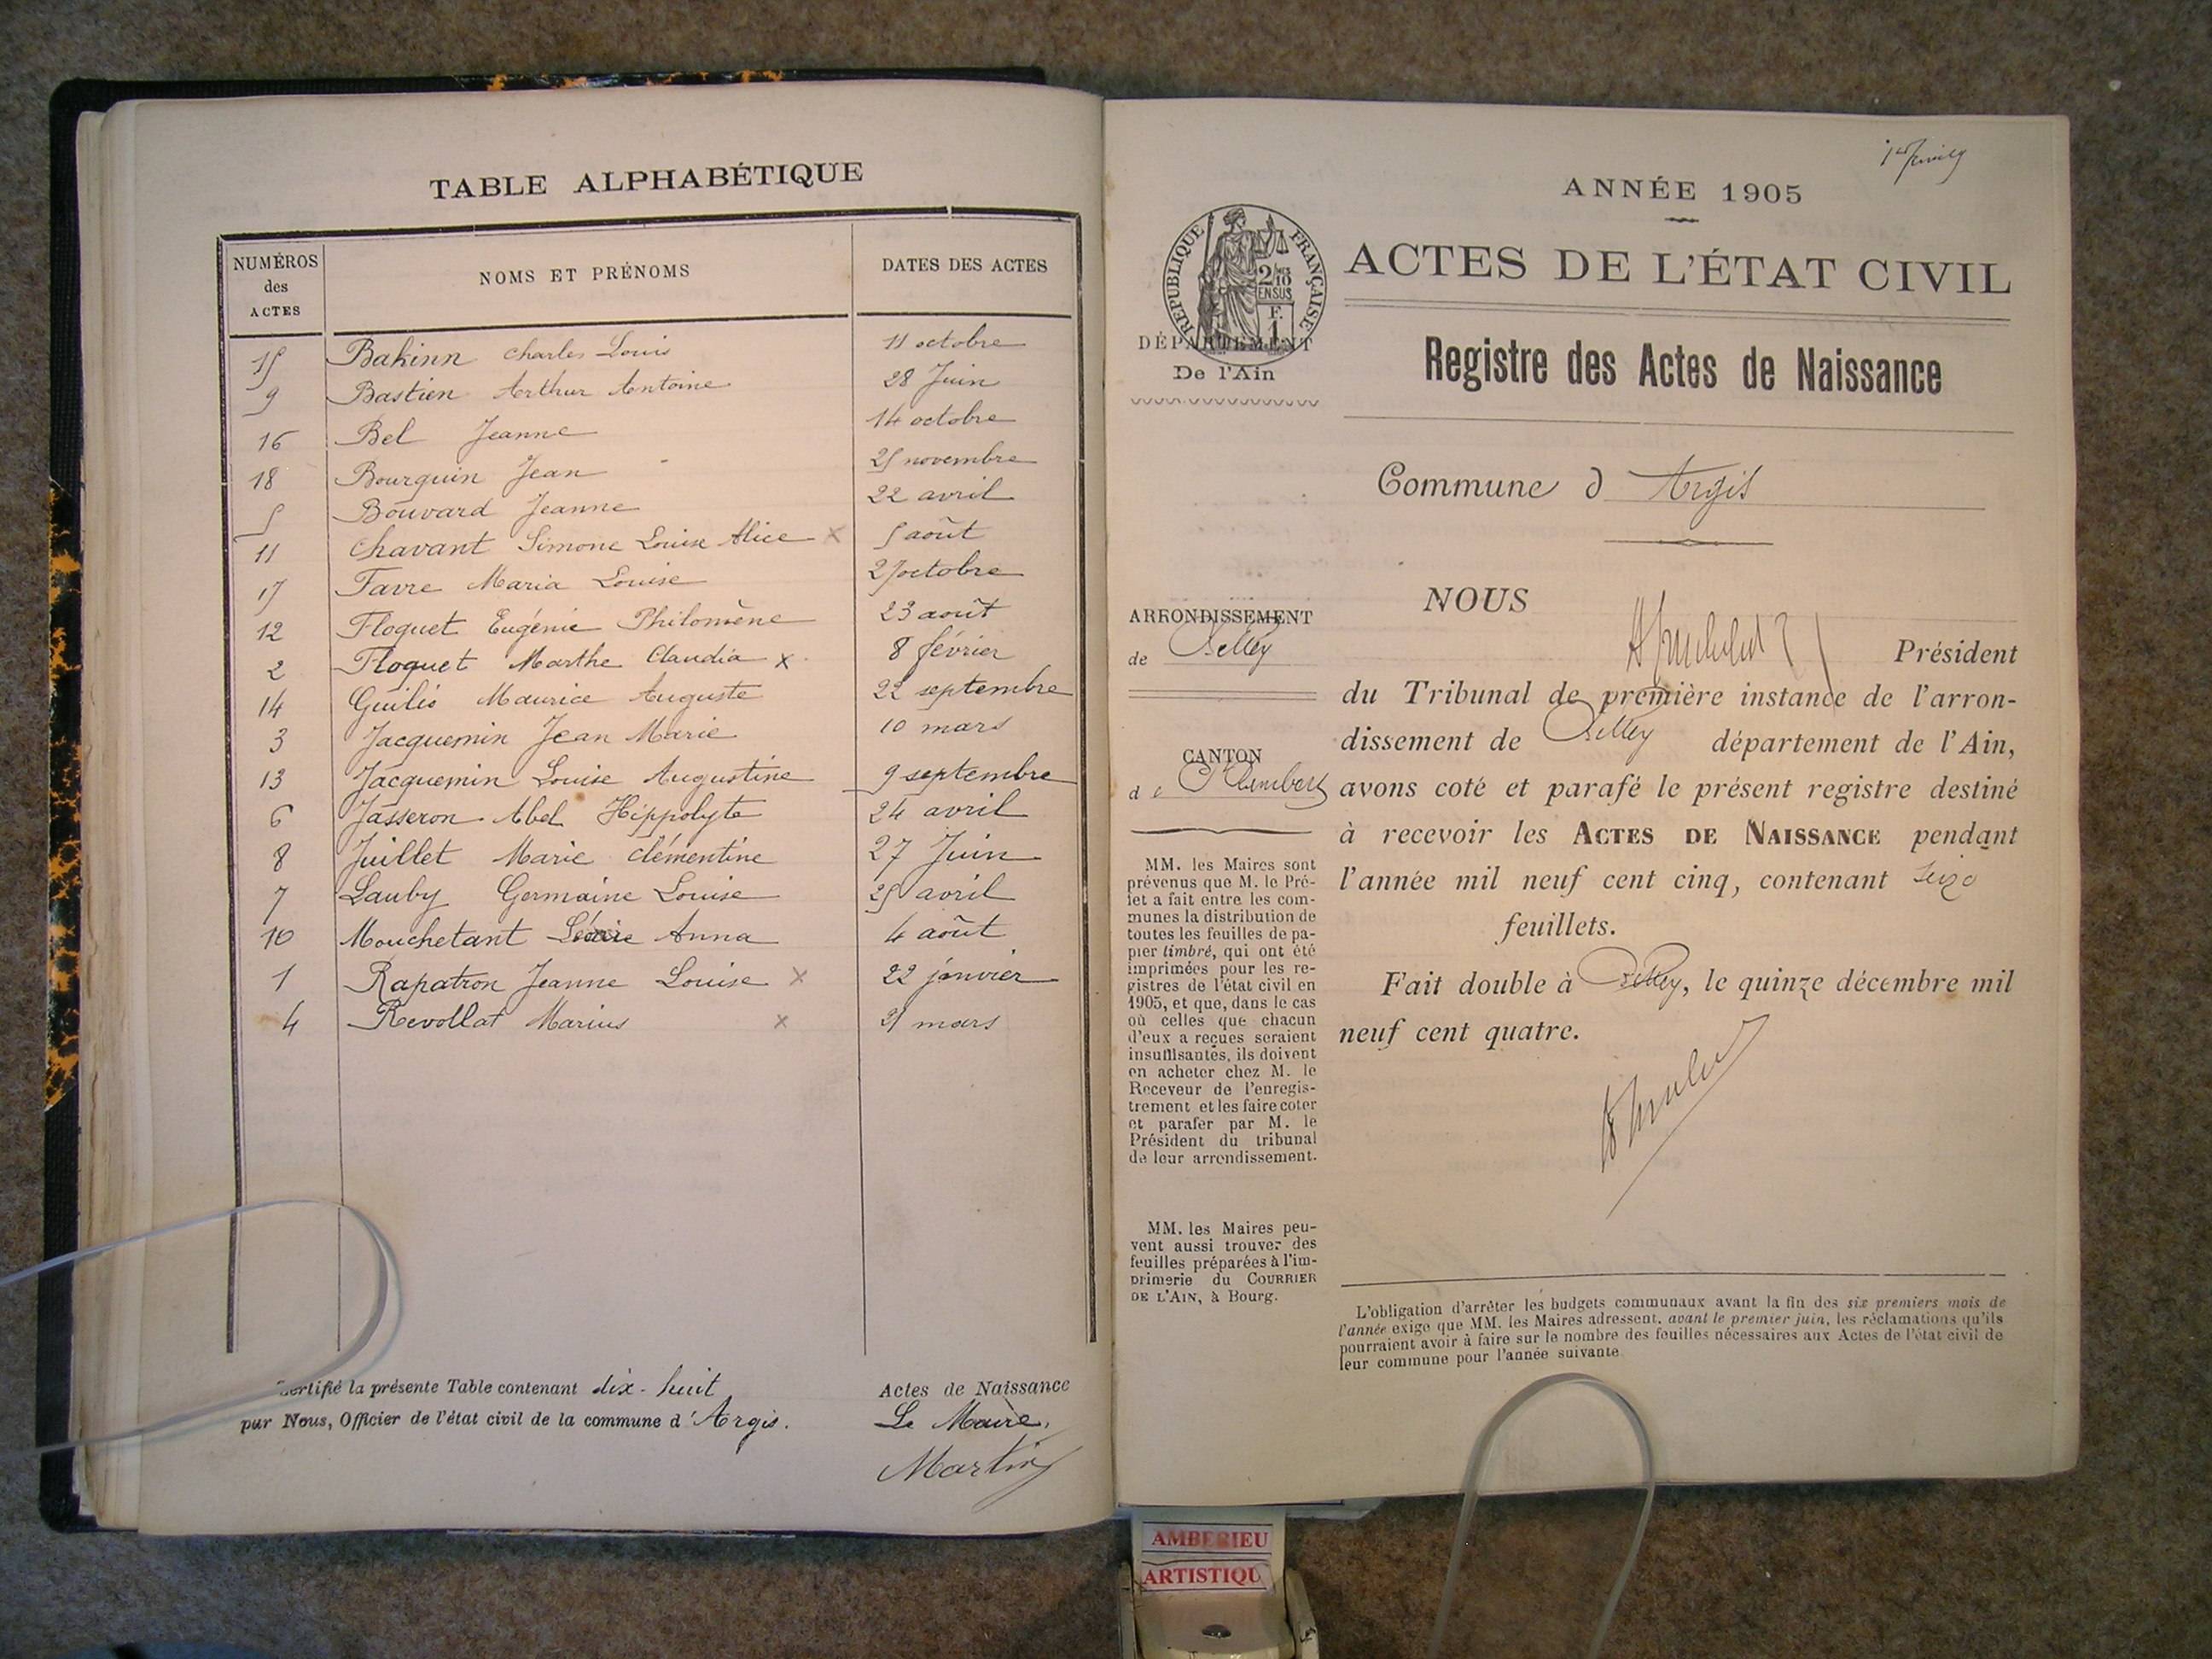 TABLE ALPHABÉTIQUE
NUMÉROS des ACTES
NOMS ET PRÉNOMS
DATES DES ACTES
15 Bakinn Charles Louis 11 octobre
9 Bastien Arthur Antoine 28 Juin
16 Bel Jeanne 14 octobre
18 Bourquin Jean 25 novembre
5 Bouvard Jeanne 22 avril
11 Chavant Simone Louise Alice x 5 août
17 Favre Maria Louise 27 octobre
12 Floquet Eugénie Philomène 23 août
2 Floquet Marthe Claudia x 8 février
14 Guilis Maurice Auguste 22 septembre
3 Jacquemin Jean Marie 10 mars
13 Jacquemin Louise Augustine 9 septembre
6 Jasseron Abel Hippolyte 24 avril
8 Juillet Marie Clémentine 27 Juin
7 Lauby Germaine Louise 25 avril
10 Mouchetant Anna 4 août
1 Rapatron Jeanne Louise x 22 janvier
4 Revollat Marius x mars
Certifié la présente Table contenant dix-huit Actes de Naissance
par Nous, Officier de l'état civil de la commune d'Argis. Le Maire,
Martin
ANNÉE 1905
ACTES DE L'ÉTAT CIVIL
RÉPUBLIQUE FRANÇAISE
2/10 EN SUS
F. 1
DÉPARTEMENT
De l'Ain
Registre des Actes de Naissance
Commune d Argis
ARRONDISSEMENT
de Belley
CANTON
de St Rambert
MM. les Maires sont
prévenus que M. le Pré-
fet a fait entre les com-
munes la distribution de
toutes les feuilles de pa-
pier timbré, qui ont été
imprimées pour les re-
gistres de l'état civil en
1905, et que, dans le cas
où celles que chacun
d'eux a reçues seraient
insuffisantes, ils doivent
en acheter chez M. le
Receveur de l'enregis-
trement et les faire coter
et parafer par M. le
Président du tribunal
de leur arrondissement.
MM. les Maires peu-
vent aussi trouver des
feuilles préparées à l'im-
primerie du COURRIER
DE L'AIN, à Bourg.
NOUS
Président
du Tribunal de première instance de l'arron-
dissement de Belley département de l'Ain,
avons coté et parafé le présent registre destiné
à recevoir les ACTES DE NAISSANCE pendant
l'année mil neuf cent cinq, contenant seize
feuillets.
Fait double à Belley, le quinze décembre mil
neuf cent quatre.
L'obligation d'arrêter les budgets communaux avant la fin des six premiers mois de
l'année exige que MM. les Maires adressent, avant le premier juin, les réclamations qu'ils
pourraient avoir à faire sur le nombre des feuilles nécessaires aux Actes de l'état civil de
leur commune pour l'année suivante.
AMBERIEU
ARTISTIQU